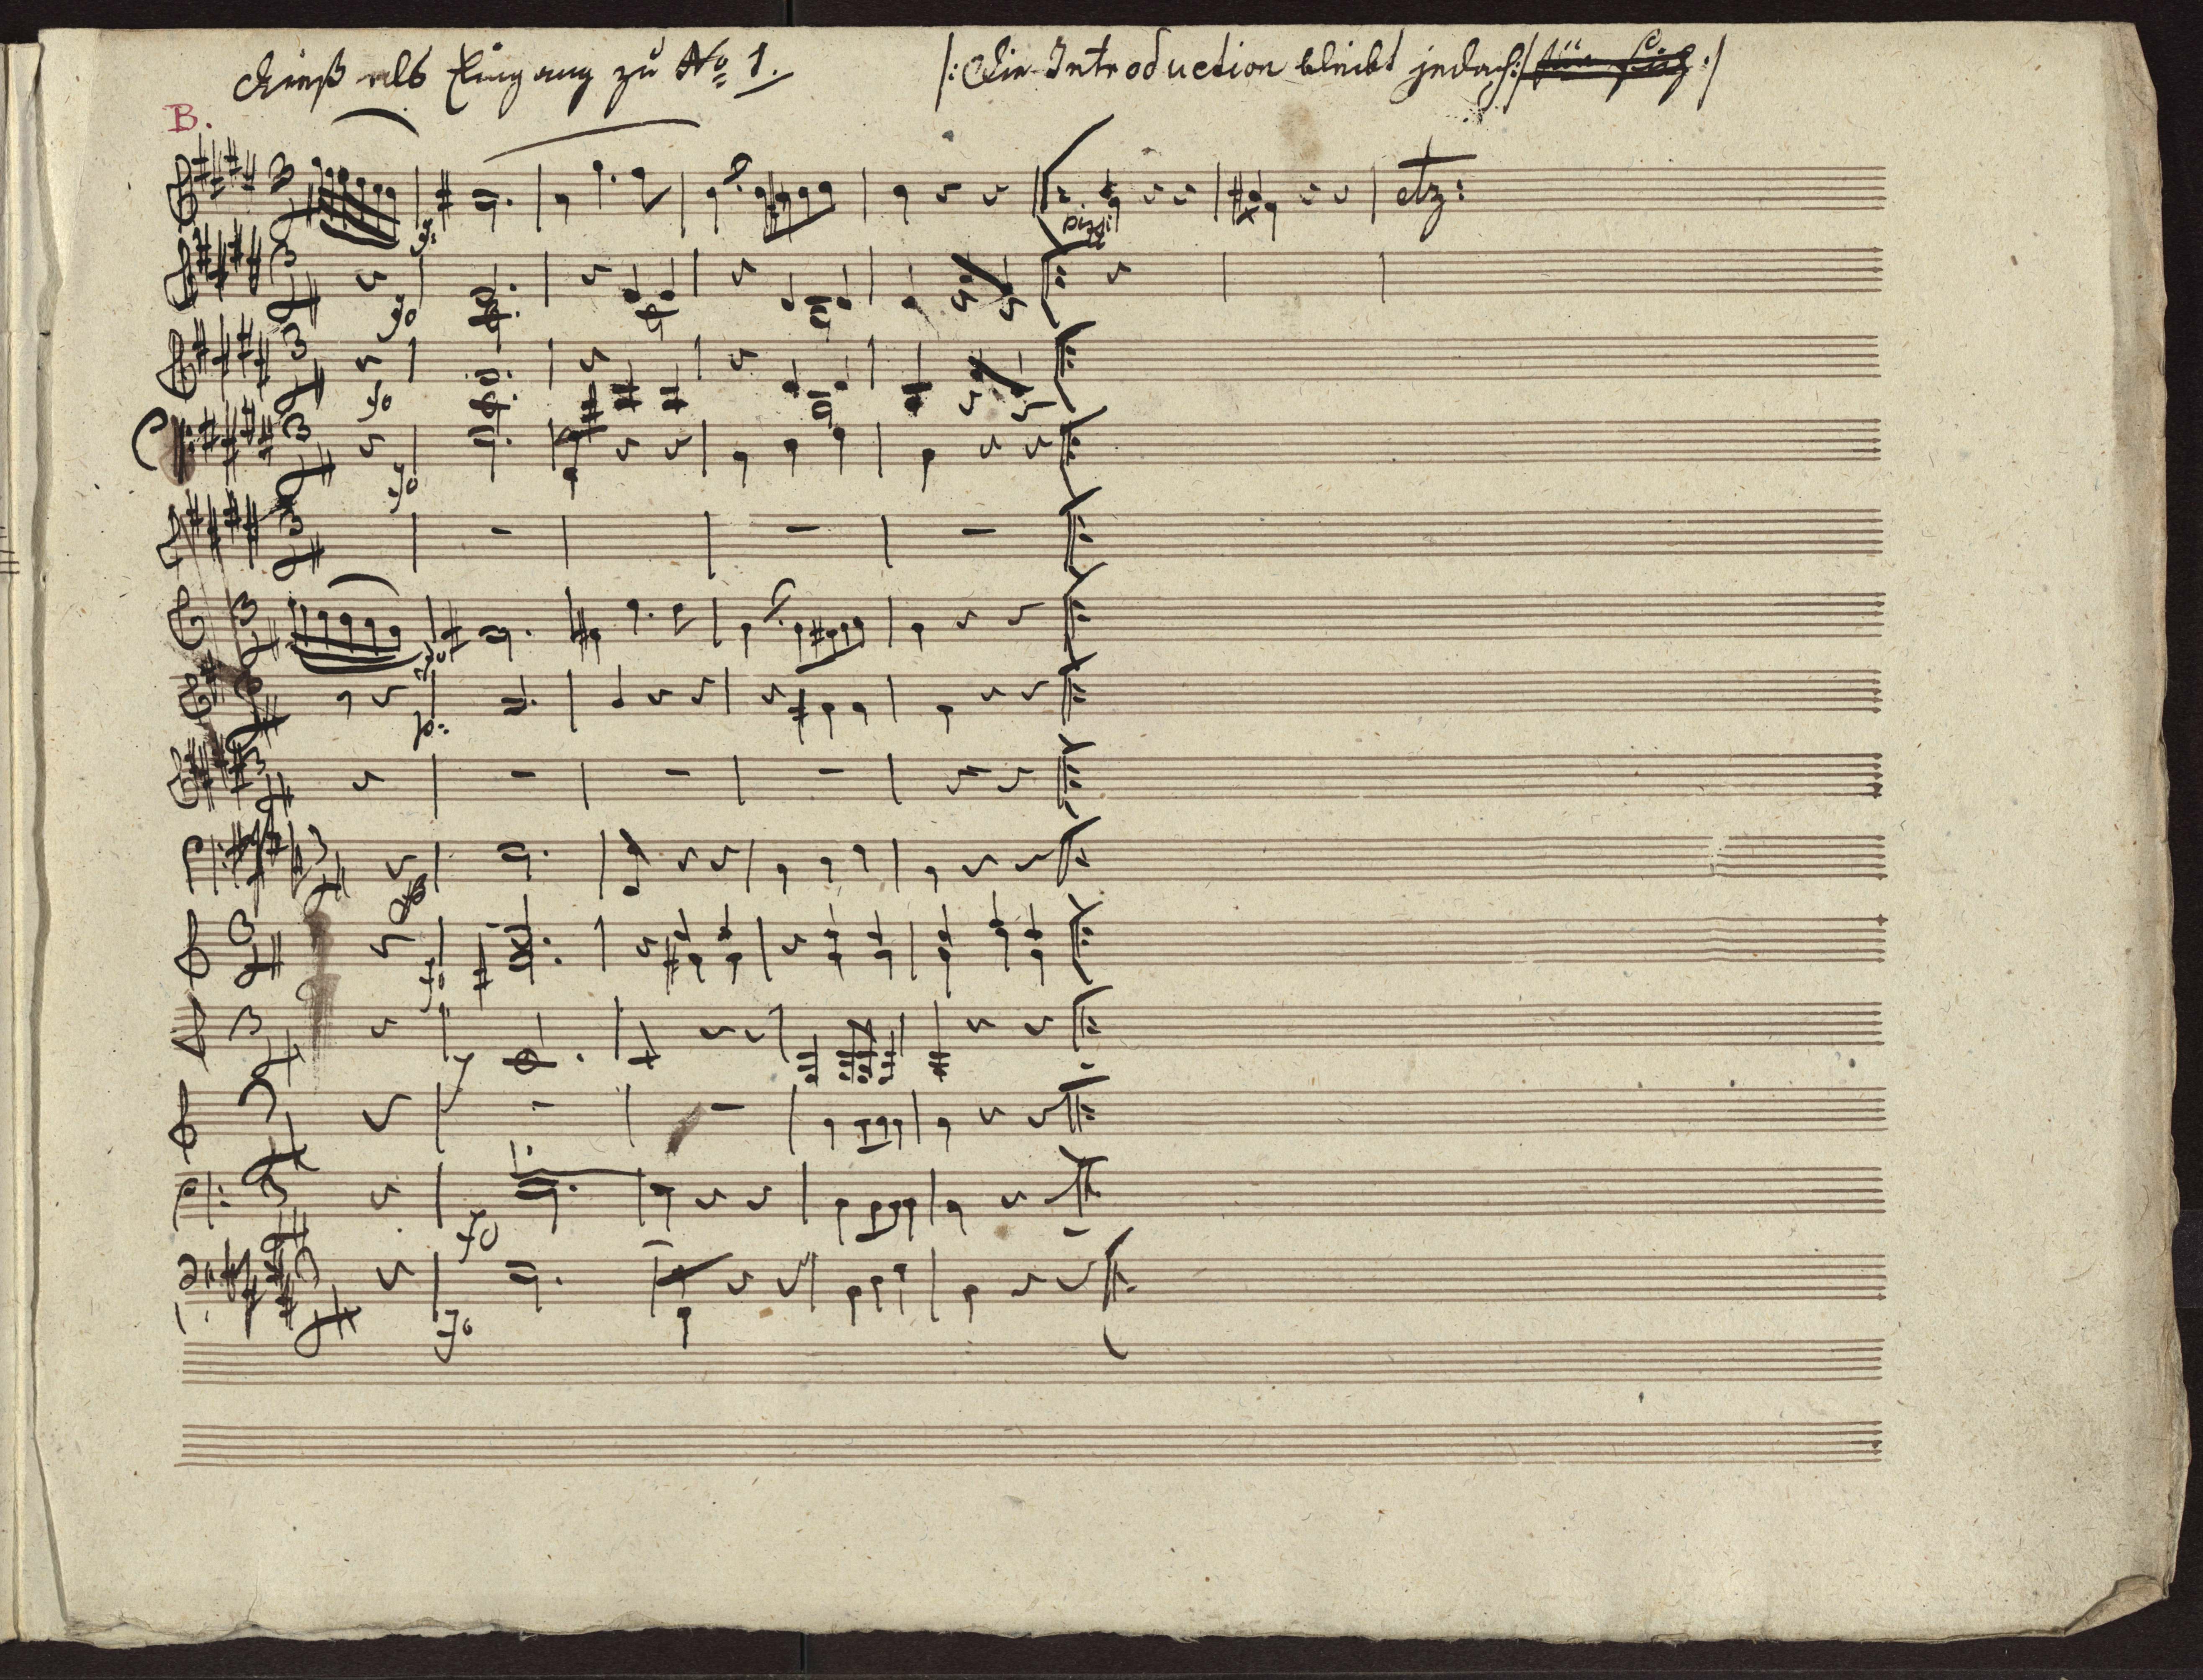 Dieß als Eingang zu No 1. /: Die Introduction bleibt jedoch :/ für sich :/
B.
pizz:
etz:
fo
fo
fo
fo
p:
fo
fo
fo